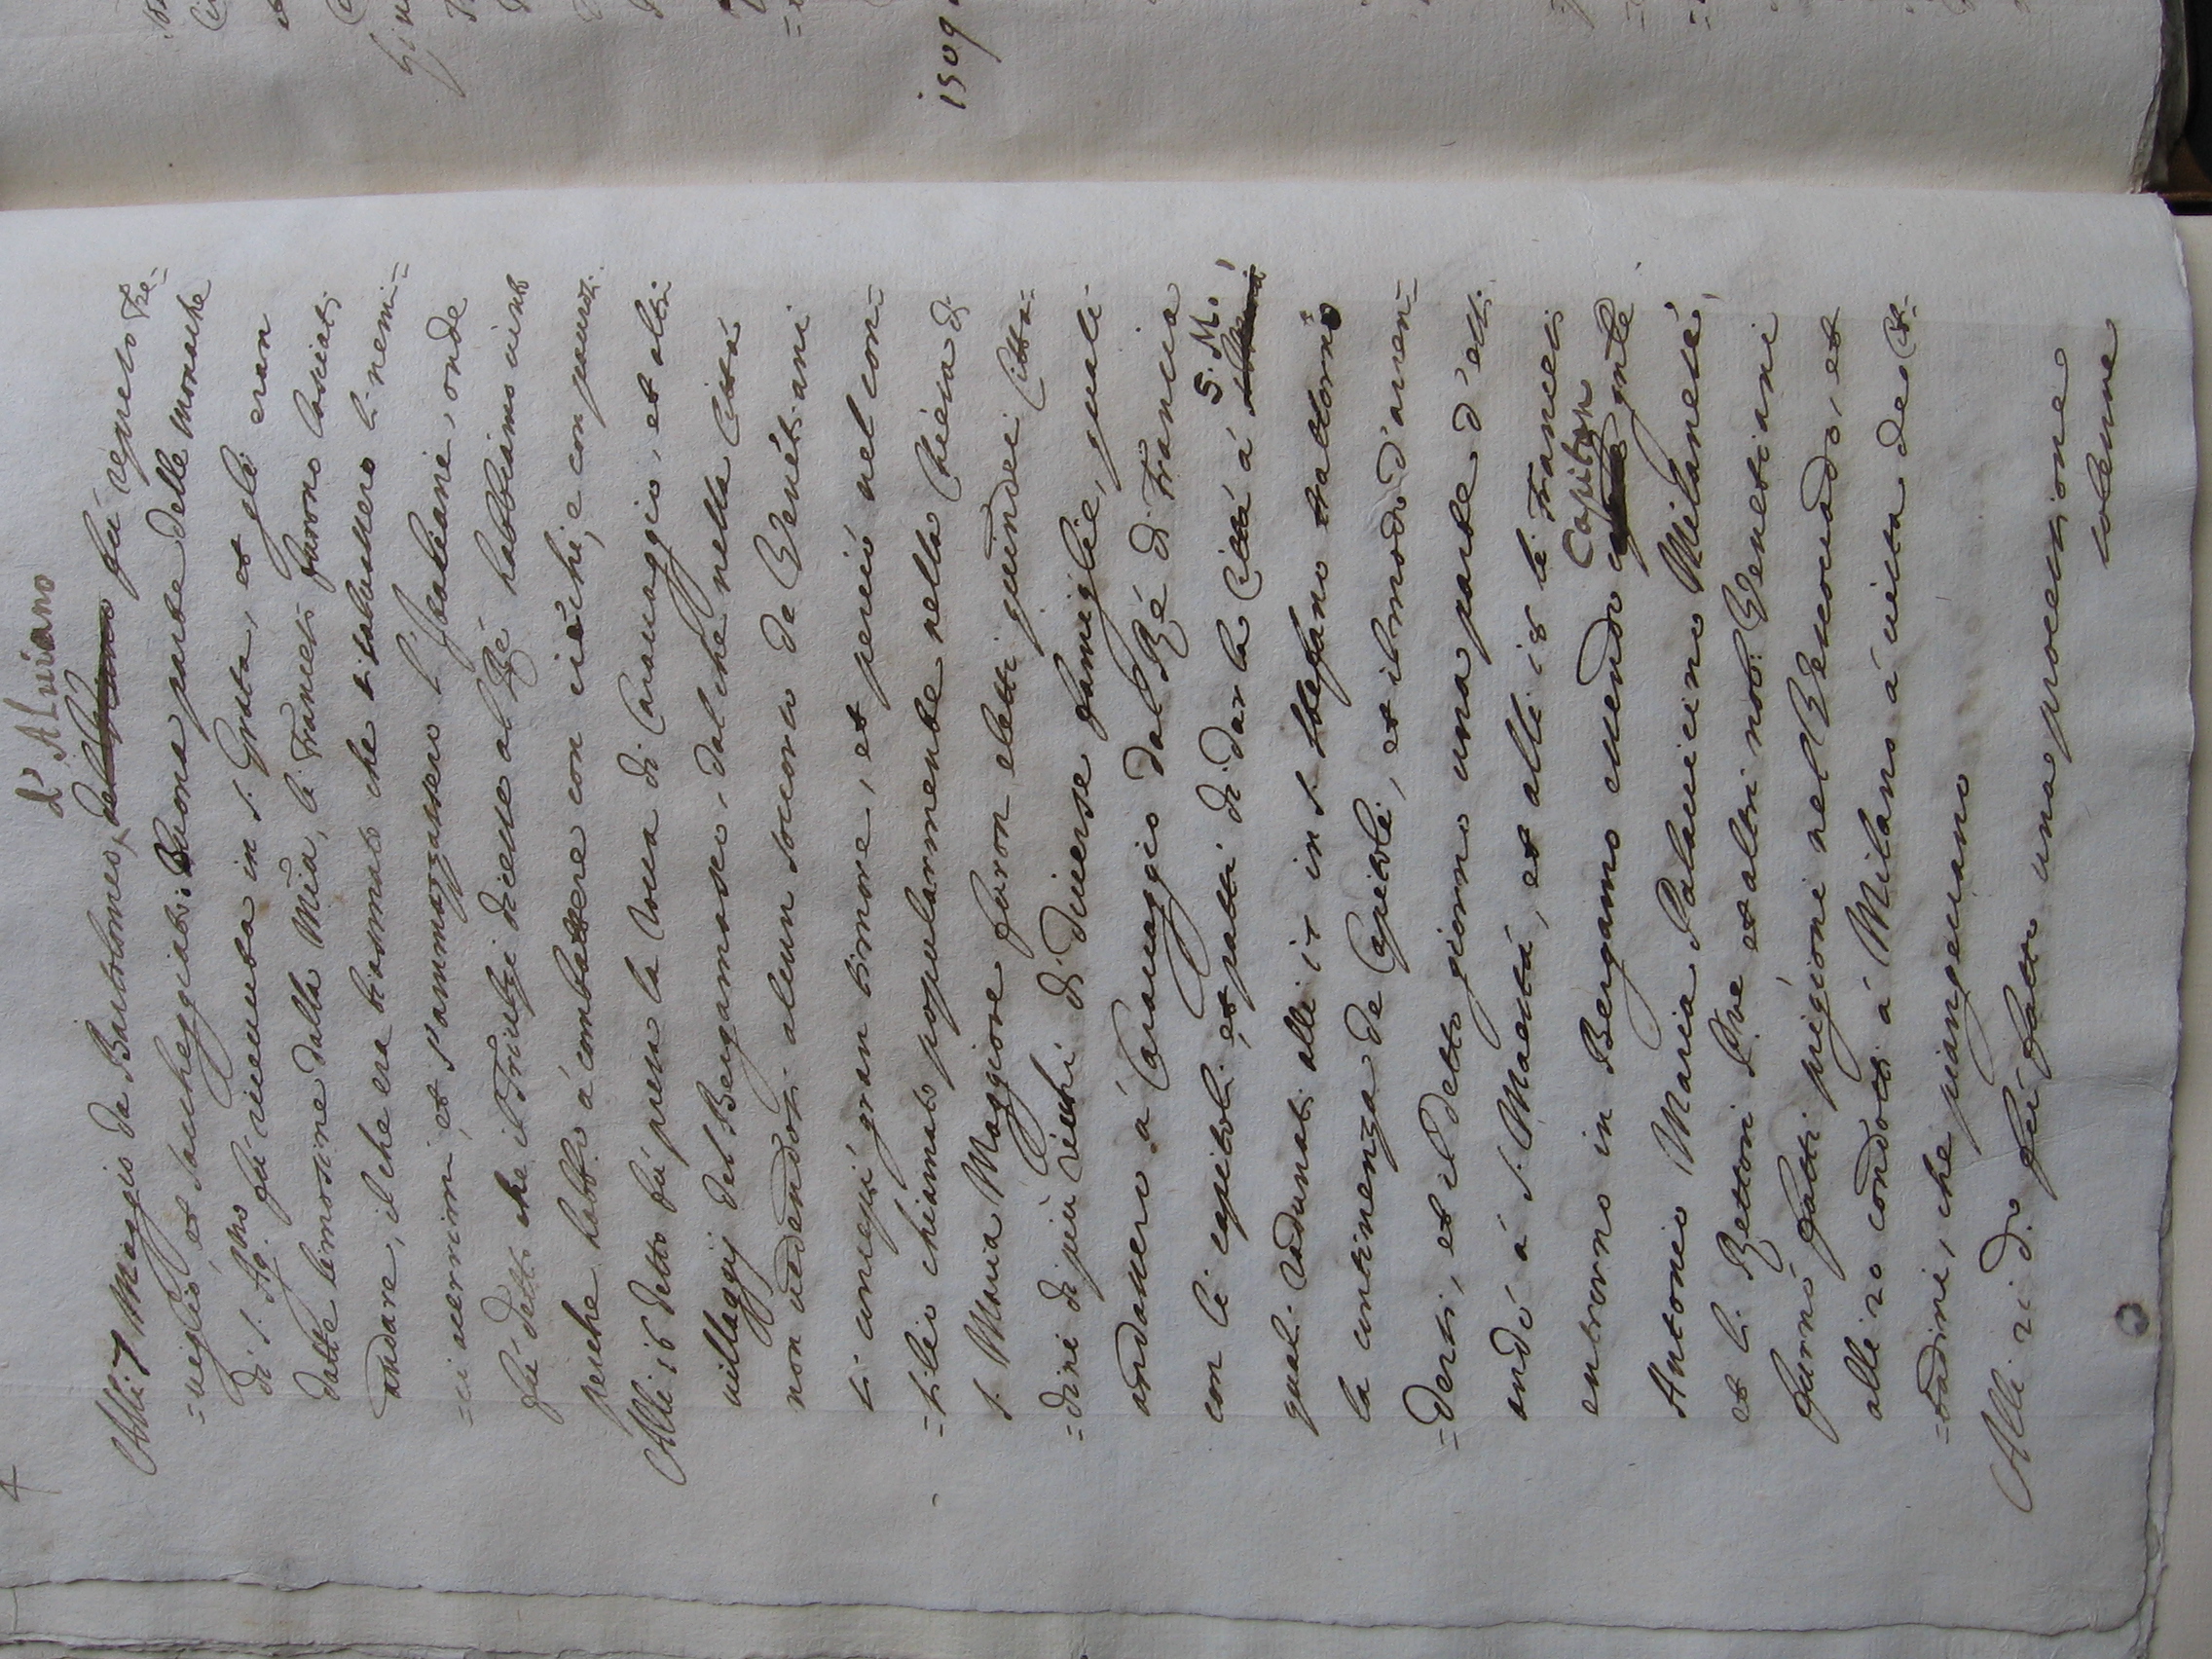 4
d'Alviano
Alli 7 Maggio da Bartolomeo fù represo Tre=
=viglio, et saccheggiato. Buona parte delle Monache
di S. Ag.no fù ricevuta in S. Grata, et gli eran
datte limosine dalla Mia, li Francesi furono lasciati
andare, il che era biasmato che si salvassero li nemi=
=ci nerrimi, et s'ammazzassero l'Italiani, onde
fù detto che il Triulzi dicesse al Rè habbiamo vinto
perche habbia à combattere con ricchi, e con paurosi.
Alli 16 detto fù presa la rocca di Caravaggio, et altri
villaggij del Bergamasco, dal che nella Città
non vedendosi alcun soccorso de Venetiani
si concepì gran timore, et perciò nel con=
=silio chiamato popularmente nella Chiesa di
S. Maria Maggiore furon eletti quindeci Citta=
=dini di più ricchi di diverse famiglie, quali
andassero à Caravaggio dal Rè di Francia
con li capitoli, et patti di dar la Città à S. M.
quali radunati alli 17 in S. Stefano trattorno
la continenza de Capitoli, et il modo d'aren=
=dersi, et il detto giorno una parte d'essi
andò à S. Maestà, et alli 18 li Francesi
entrorno in Bergamo essendo Capitan gnle
Antonio Maria Palavicino Milanese,
et li Rettori Pñe et altri nob: Venetiani
furno fatti prigioni nel Vescovado, et
alli 20 condotti à Milano à vista de Cit=
=tadini, che piangevano
Alli 21 d.o fù fatto una processione
solenne
1509